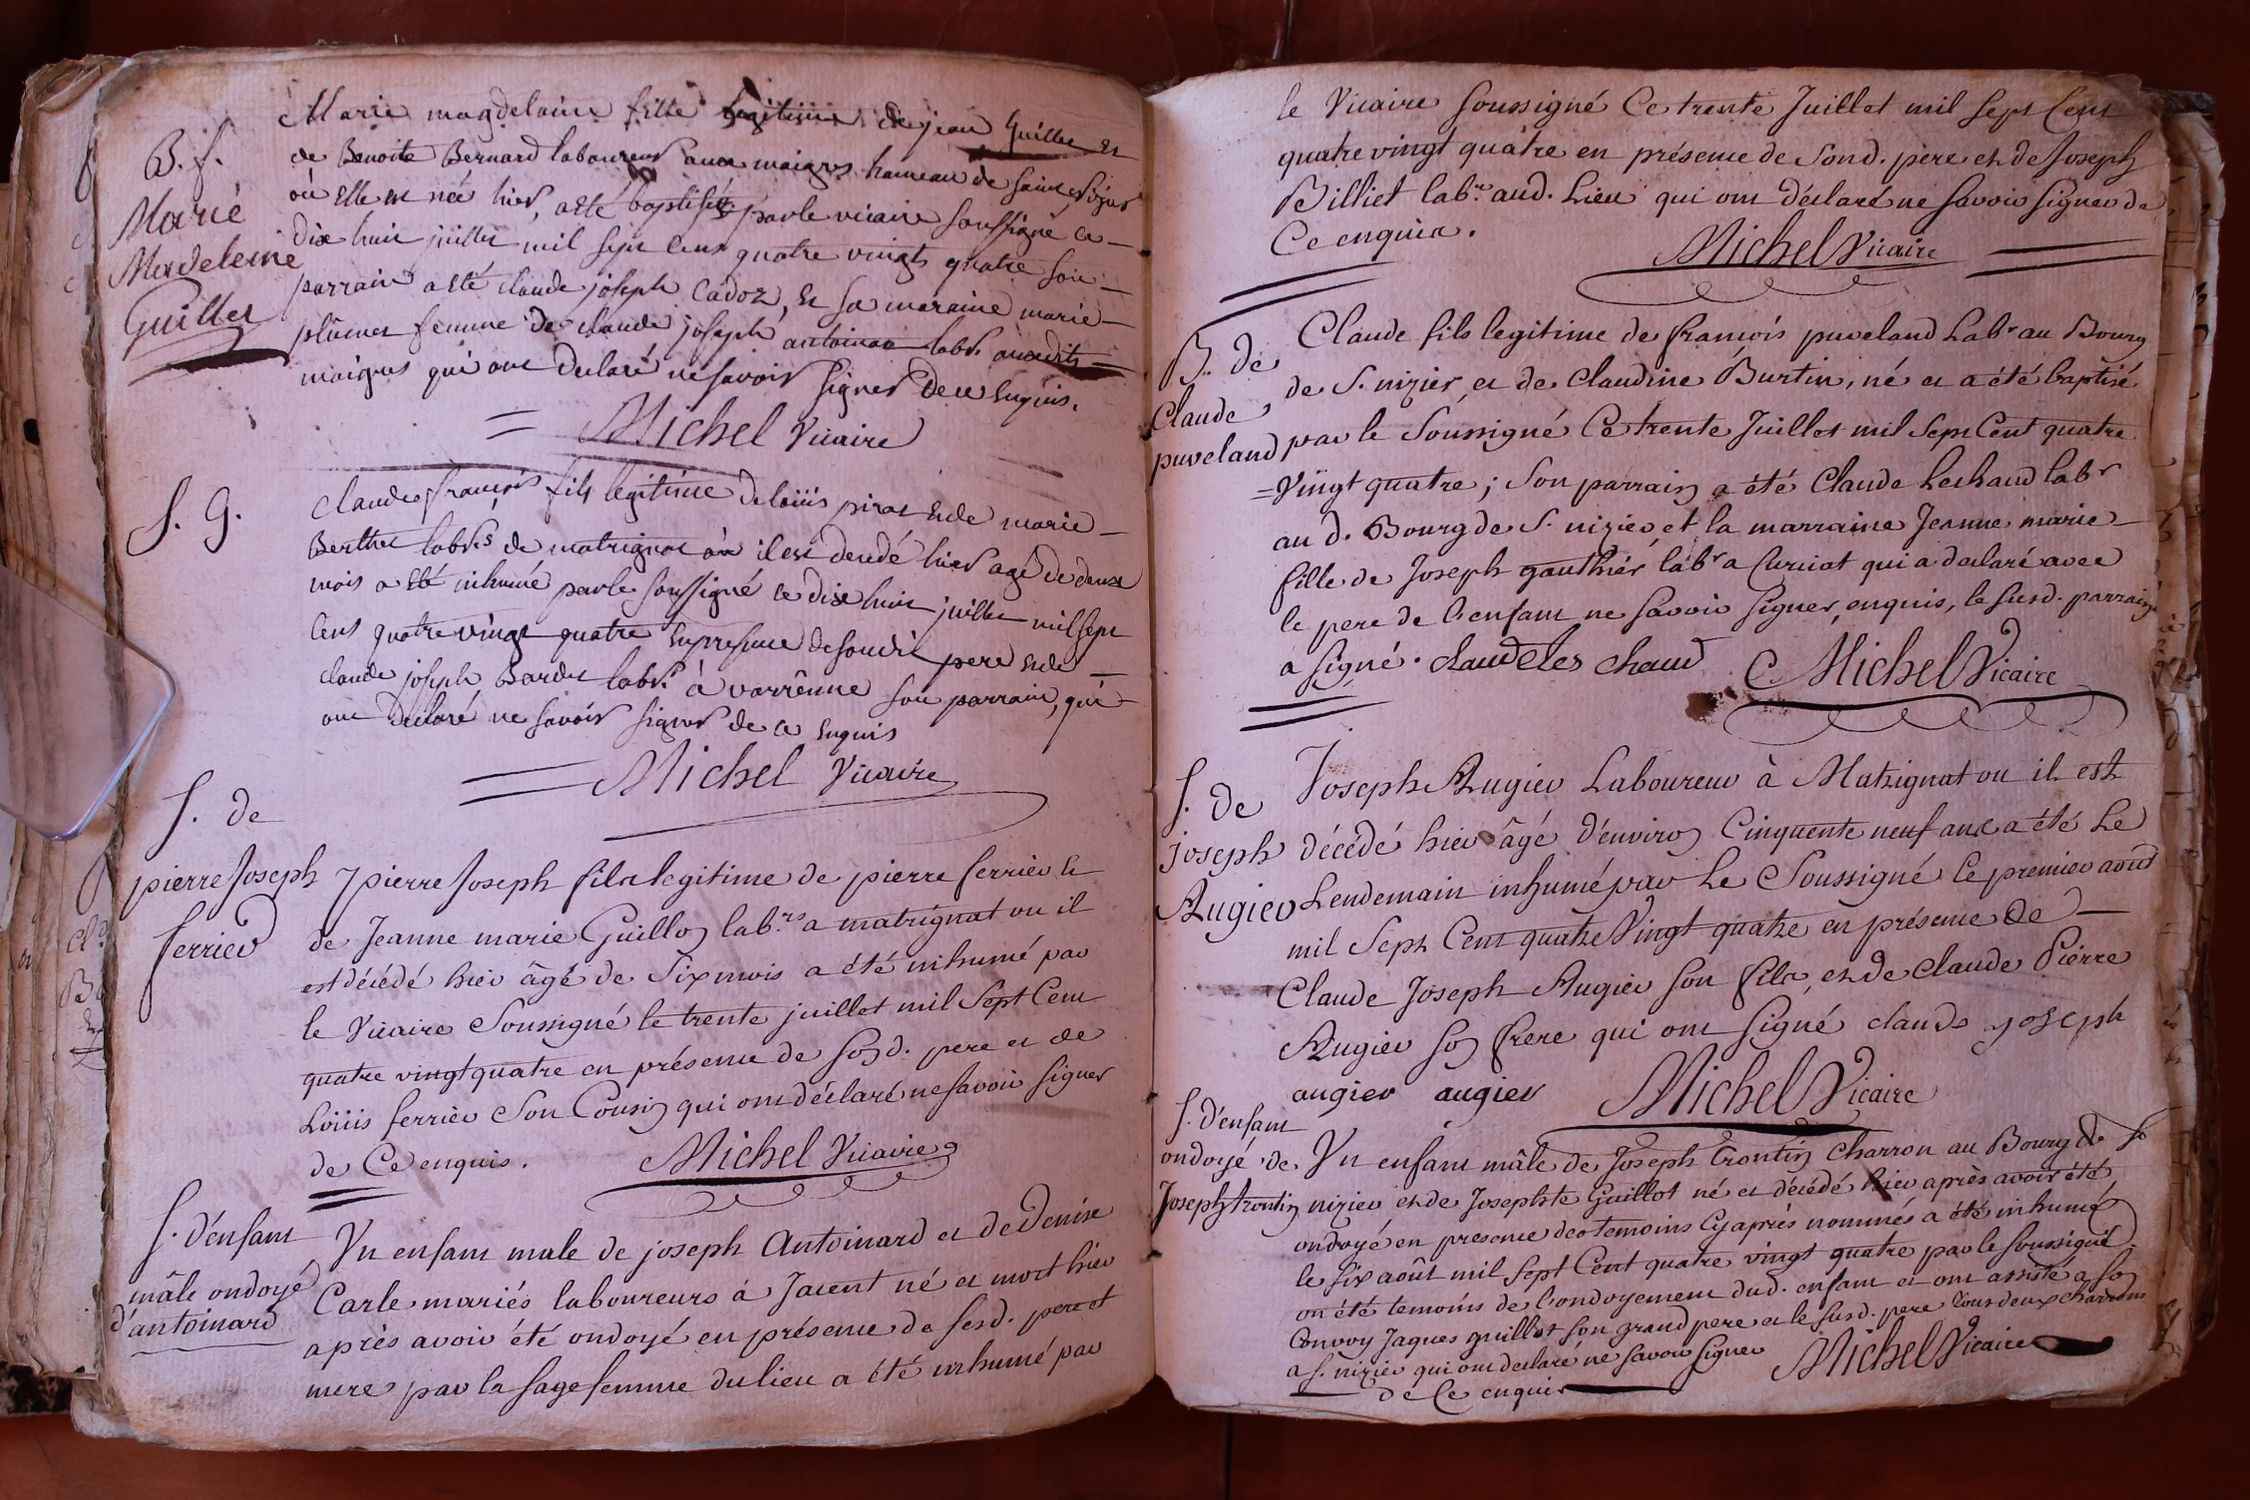 B. f.
Marie
Madeleine
Guillet
Marie magdelaine fille legitime de jean Guillet et
de Benoite Bernard laboureurs aux maigres hameau de saint nizier
où elle est née hier, a eté baptisée par le vicaire soussigné ce
dix huit juillet mil sept cent quatre vingts quatre son
parrain a eté claude joseph Cadoz, et sa maraine marie
femme de claude joseph antoinar labr. auxdits
maigres qui ont declaré ne savoir signer de ce enquis.
Michel Vicaire
S. G.
Claude françois fils legitime de loüis pirat et de marie
Berthet labrs. de matrignat où il est decedé hier agé de deux
mois a eté inhumé par le soussigné ce dix huit juillet mil sept
cent quatre vingt quatre en presence de soudit pere et de
claude joseph Bardet labr. à varrênne son parrain, qui
ont declaré ne savoir signer de ce enquis
Michel Vicaire
S. de
pierre Joseph
ferrier
pierre Joseph fils legitime de pierre ferrier et
de Jeanne marie Guillon lab.rs a matrignat ou il
est décédé hier âgé de six mois a été inhumé par
le Vicaire Soussigné le trente juillet mil Sept Cent
quatre vingt quatre en présence de sond. pere et de
Loüis ferrier Son Cousin qui ont déclaré ne savoir signer
de Ce enquis.
Michel Vicaire
S. d'enfant
mâle ondoyé
d'antoinard
Un enfant male de joseph Antoinard et de Denise
Carle mariés laboureurs à Jacent né et mort hier
après avoir été ondoyé en présence de sesd. pere et
mere par la sagefemme du lieu a été inhumé par
le Vicaire soussigné Ce trente Juillet mil sept Cent
quatre vingt quatre en présence de Sond. père et de Joseph
Billiet labr. aud. Lieu qui ont déclaré ne savoir signer de
Ce enquis.
Michel Vicaire
B. de
Claude
puveland
Claude fils legitime de françois puveland Labr au Bourg
de S. nizier, et de Claudine Burtin, né et a été baptisé
par le Soussigné Ce trente Juillet mil Sept Cent quatre
=Vingt quatre; Son parrain a été Claude Leshaud labr
au d. Bourg de S. nizier, et la marraine Jeanne marie
fille de Joseph gauthier labr a Curciat qui a declaré avec
le pere de l'enfant ne savoir signer, enquis, le susd. parrain
a signé. claude les chaud
Michel Vicaire
S. de
joseph
Augier
Joseph Augier Laboureur à Matrignat ou il est
décédé hier âgé d'environ Cinquente neuf ans a été Le
Lendemain inhumé par Le Soussigné Ce premier août
mil Sept Cent quatre Vingt quatre en présence de
Claude Joseph Augier son fils, et de Claude Pierre
Augier son frere qui ont signé claude joseph
augier augier
Michel Vicaire
S. d'enfant
ondoyé de
Joseph trontin
Un enfant mâle de Joseph trontin Charron au Bourg de St
nizier et de Josephte Guillot né et décédé hier après avoir été
ondoyé en presence des temoins Cy après nommés a été inhumé
le six août mil sept Cent quatre vingt quatre par le soussigné
on été temoins de l'ondoyement dud. enfant et ont assisté a son
Convoy Jaques guillot son grand pere et le susd. pere tous deux charrons
a S. nizier qui ont declaré ne savoir signer
de Ce enquis
Michel Vicaire